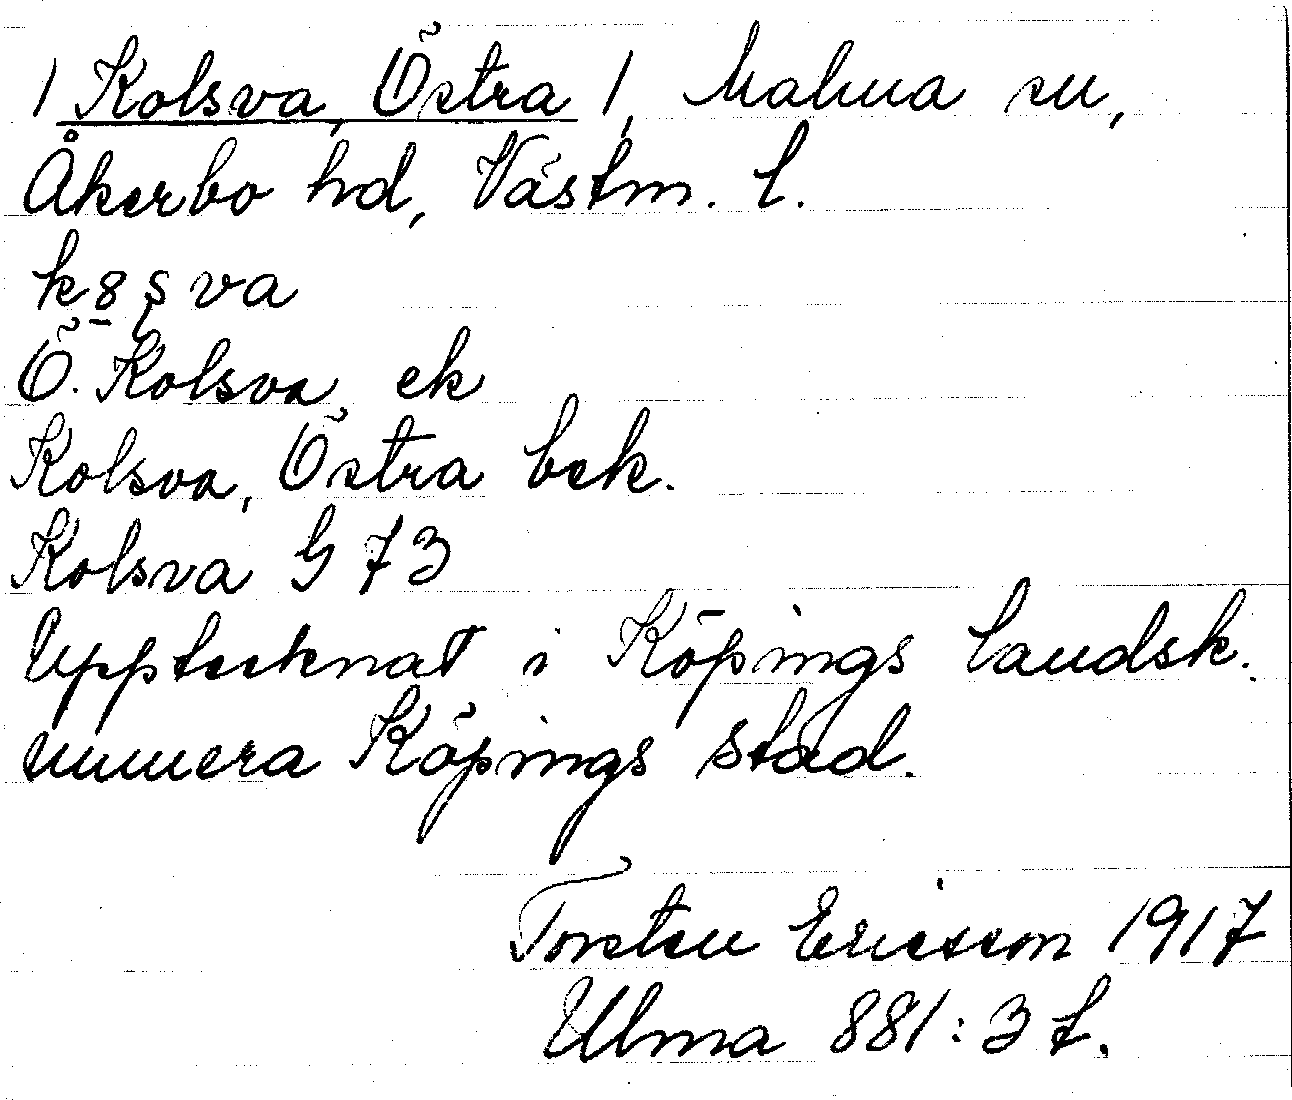 / Kolsva, Östra /, Malma sn,
Åkerbo hd, Västm. l.
k8şva
Ö. Kolsva ek
Kolsva, Östra bek.
Kolsva G 73
Upptecknat i Köpings landsk.
numera Köpings stad.
Torsten Ericsson 1917
Ulma 881:3 f.